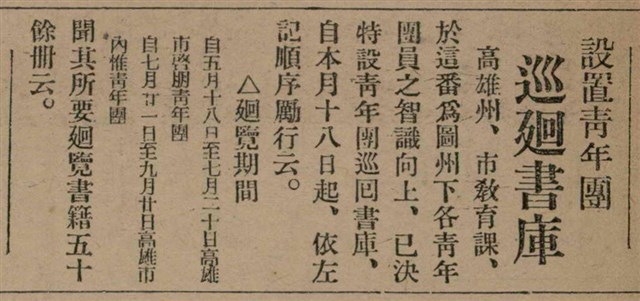 設置青年團
巡廻書庫
高雄州、市敎育課、
於這番爲圖州下各靑年
團員之智識向上、已決
特設靑年團巡囘書庫、
自本月十八日起、依左
記順序勵行云。
△廻覽期間
自五月十八日至七月二十日高雄
市啓朋靑年團
自七月廿一日至九月廿日高雄市
內惟靑年團
聞其所要廻覽書籍五十
餘册云。